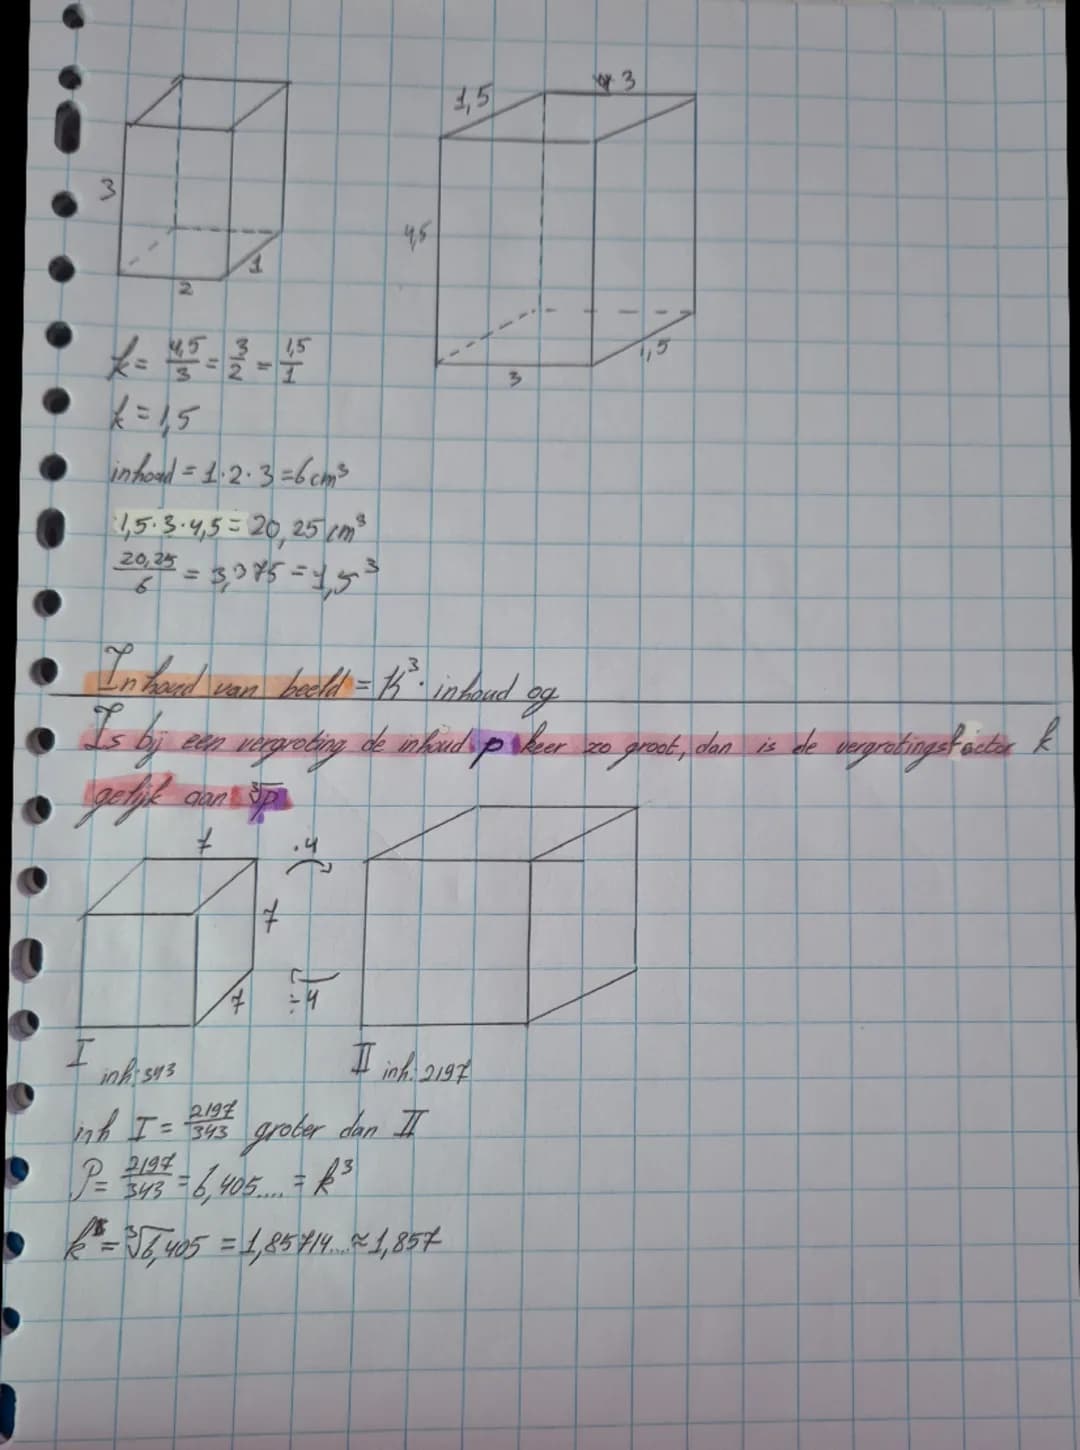 1,5 3
3
4,5
1
2
1,5
3
k = 4,5/3 = 3/2 = 1,5/1
k = 1,5
inhoud = 1·2·3 = 6 cm³
1,5·3·4,5 = 20,25 cm³
20,25/6 = 3,375 = 1,5³
Inhoud van beeld = k³ · inhoud og
Is bij een vergroting de inhoud p keer zo groot, dan is de vergrotingsfactor k
gelijk aan ∛p
7 ·4
7
7 ÷4
I inh: 343 II inh: 2197
inh I = 2197/343 groter dan II
P = 2197/343 = 6,405.... = k³
k = ∛6,405 = 1,85714... ≈ 1,857